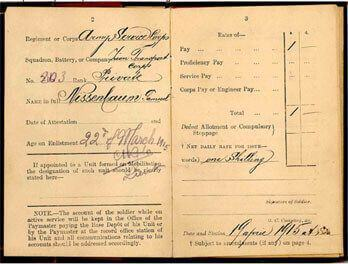 2
Regiment or Corps Army Service Corps
Squadron, Battery, or Company Zion Transport Corps
No. 203 Rank Private
NAME in full Nissenbaum Samuel
Date of Attestation and
Age on Enlistment 22 March
If appointed to a Unit formed on Mobilization
the designation of such unit should be
stated here—
NOTE.—The account of the soldier while on
active service will be kept in the Office of the
Paymaster paying the Base Depôt of his Unit or
the Paymaster at the record office station of his
Unit and all communications relating to his
accounts should be addressed accordingly.
3
Rates of—
s. d.
Pay 1
Proficiency Pay
Service Pay
Corps Pay or Engineer Pay
Total 1
Deduct Allotment or Compulsory
Stoppage
† NET DAILY RATE FOR ISSUE
words) one shilling
Signature of Soldier.
O. C. Company, &c.
Date and Station
† Subject to amendments (if any) on page 4.